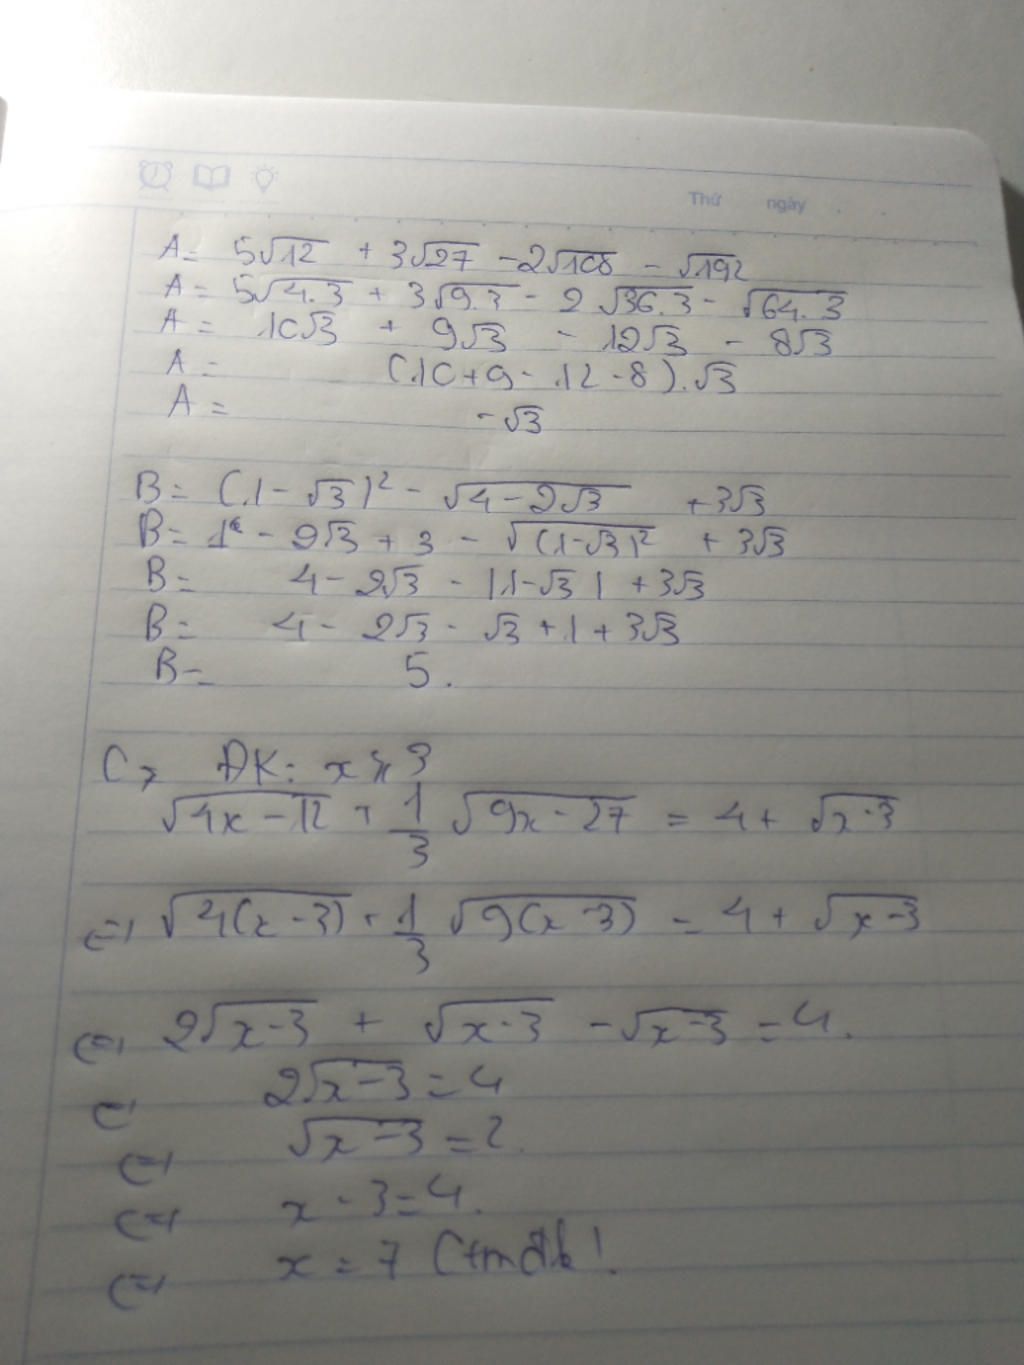 Thứ ngày
A = 5√12 + 3√27 - 2√108 - √192
A = 5√4.3 + 3√9.3 - 2√36.3 - √64.3
A = 10√3 + 9√3 - 12√3 - 8√3
A = (10+9-12-8).√3
A = -√3
B = (1-√3)² - √4-2√3 + 3√3
B = 1² - 2√3 + 3 - √(1-√3)² + 3√3
B = 4 - 2√3 - |1-√3| + 3√3
B = 4 - 2√3 - √3 + 1 + 3√3
B = 5.
C, ĐK: x ≥ 3
√4x-12 + 1/3 √9x-27 = 4 + √x-3
<=> √4(x-3) + 1/3 √9(x-3) = 4 + √x-3
<=> 2√x-3 + √x-3 - √x-3 = 4.
<=> 2√x-3 = 4
<=> √x-3 = 2.
<=> x-3 = 4.
<=> x = 7 (tmđk)